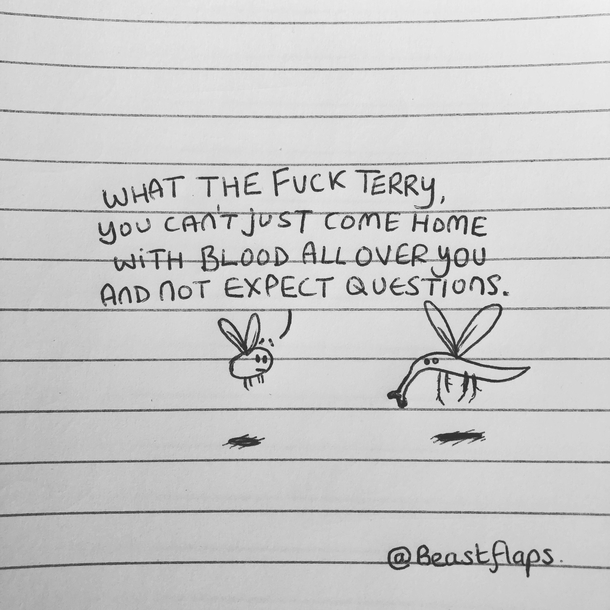 WHAT THE FUCK TERRY,
YOU CAN'T JUST COME HOME
WITH BLOOD ALL OVER YOU
AND NOT EXPECT QUESTIONS.
@Beastflaps.